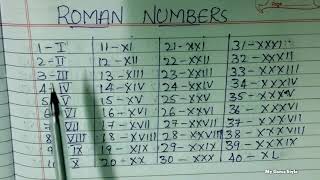 ROMAN NUMBERS
1 - I 11 - XI 21 - XXI 31 - XXXI
2 - II 12 - XII 22 - XXII 32 - XXXII
3 - III 13 - XIII 23 - XXIII 33 - XXXIII
4 - IV 14 - XIV 24 - XXIV 34 - XXXIV
5 - V 15 - XV 25 - XXV 35 - XXXV
6 - VI 16 - XVI 26 - XXVI 36 - XXXVI
7 - VII 17 - XVII 27 - XXVII 37 - XXXVII
8 - VIII 18 - XVIII 28 - XXVIII 38 - XXXVIII
9 - IX 19 - XIX 29 - XXIX 39 - XXXIX
10 - X 20 - XX 30 - XXX 40 - XL